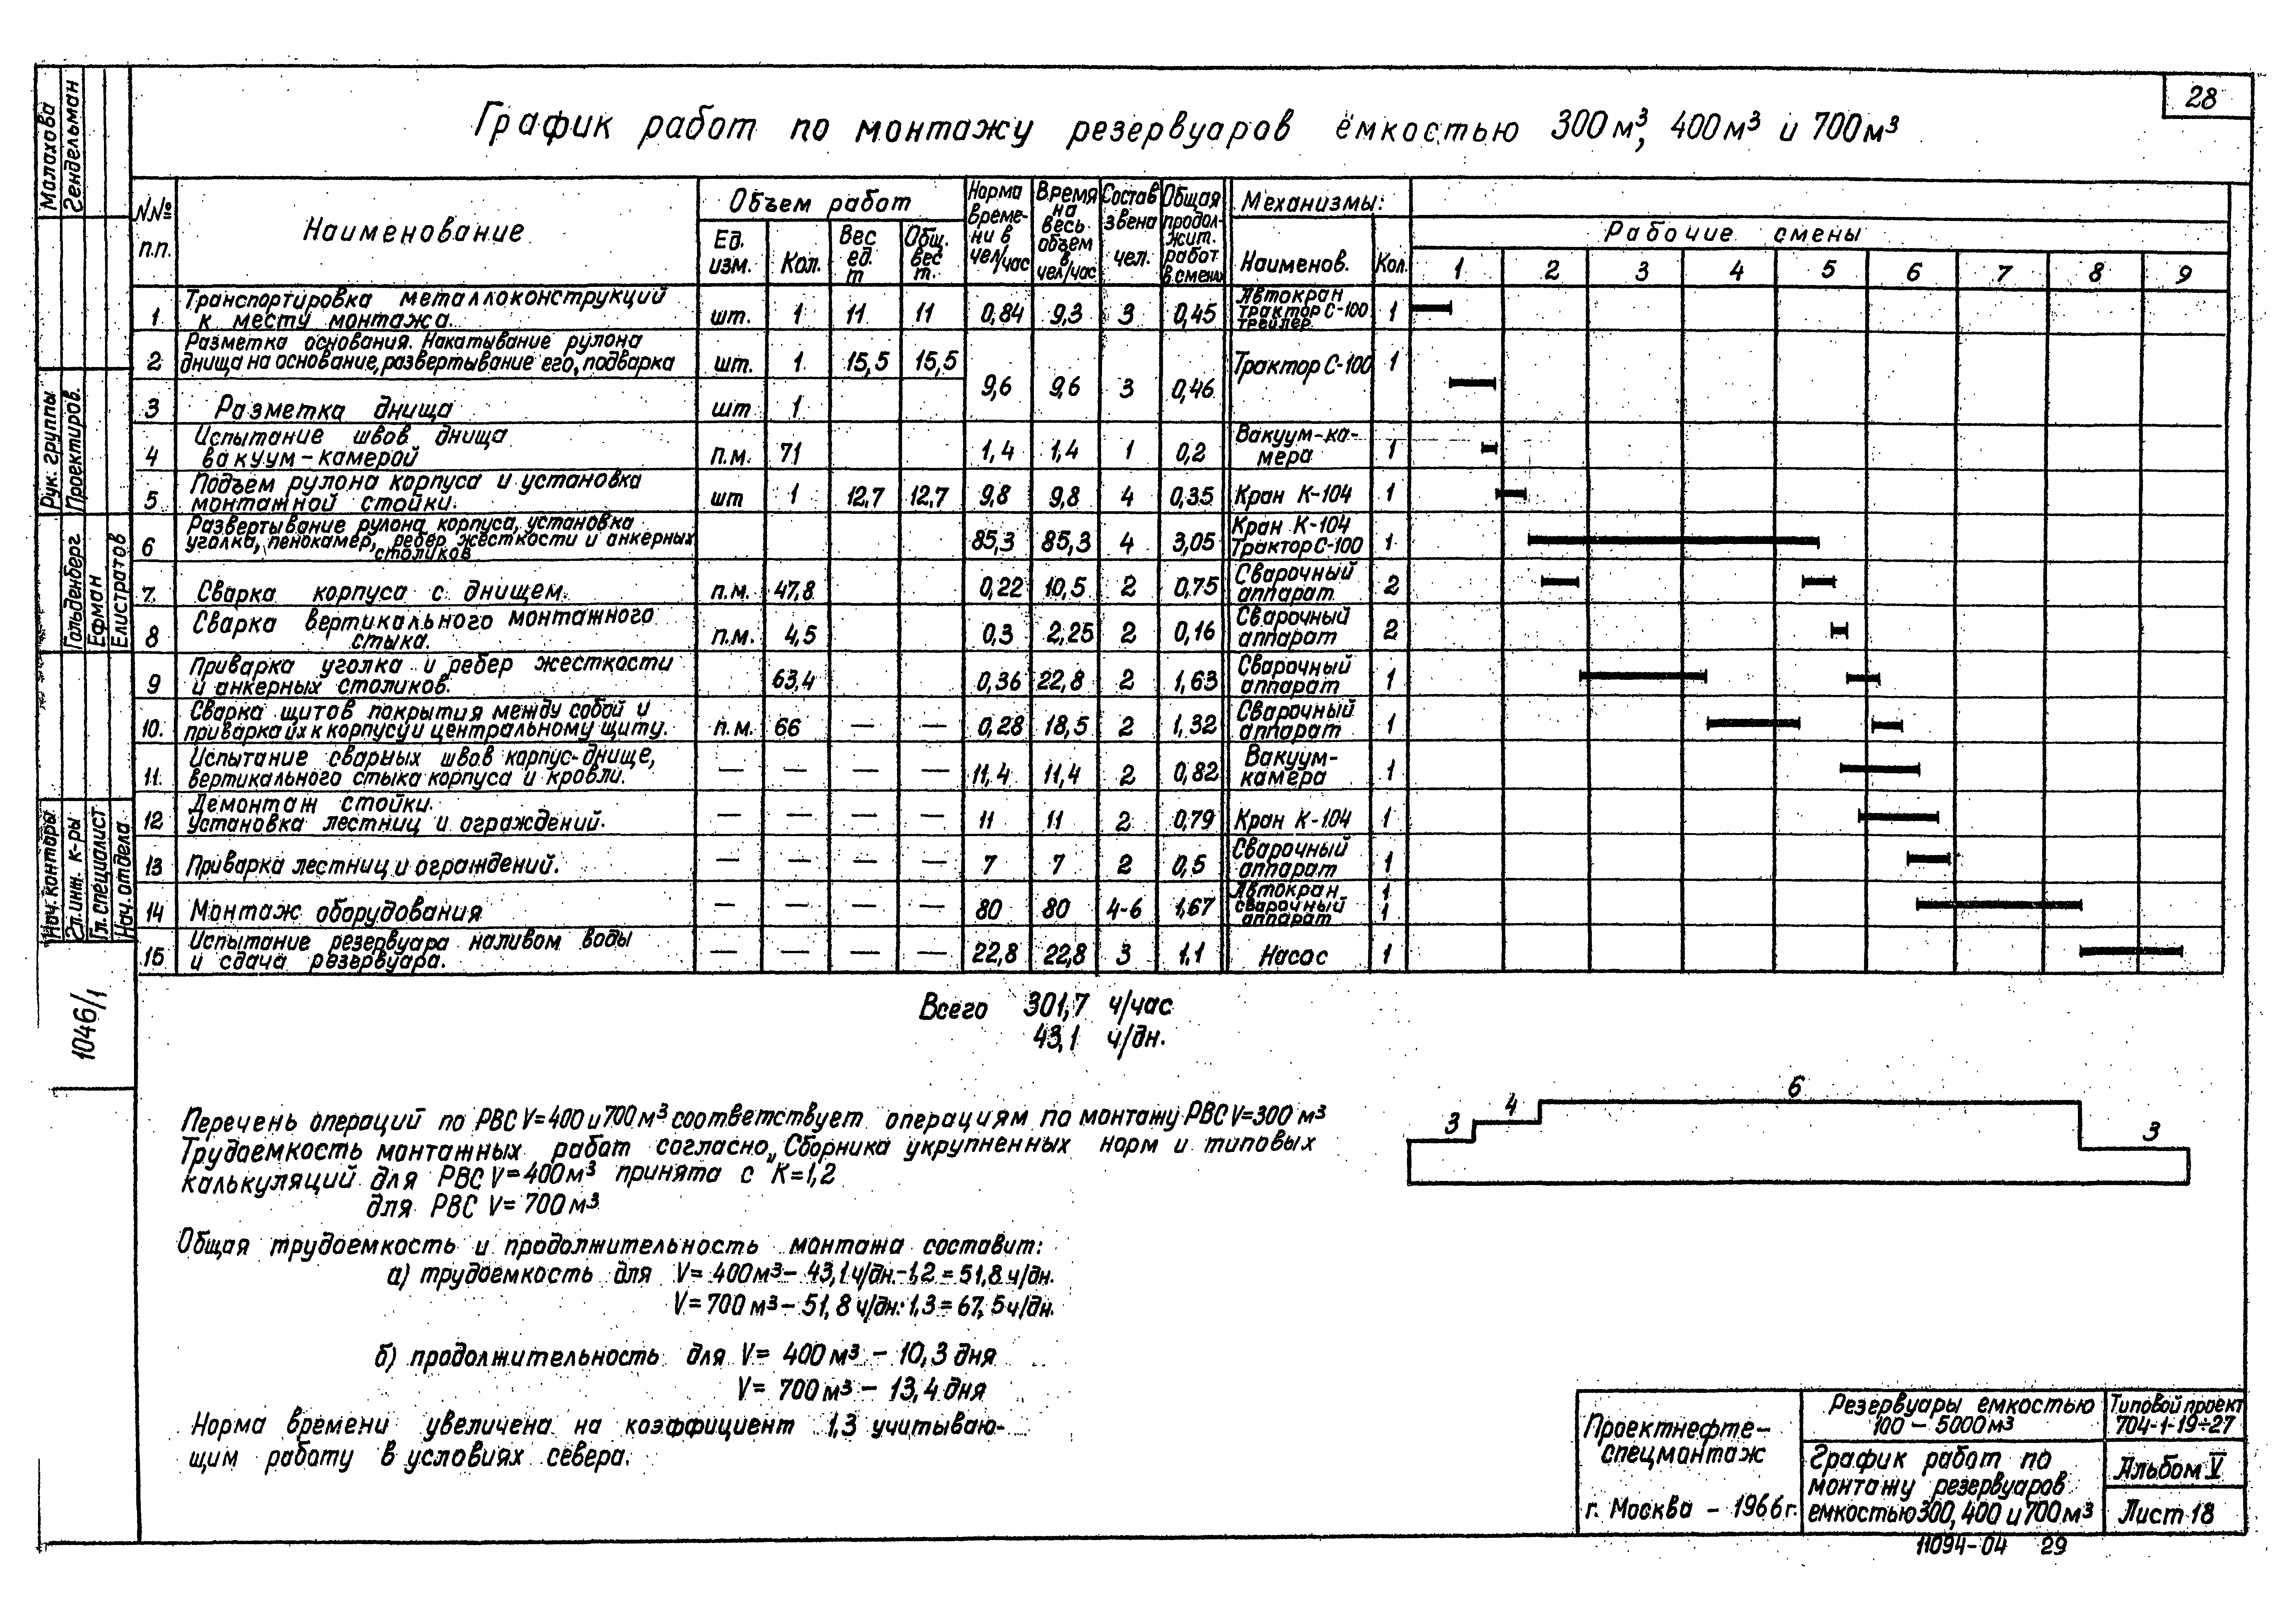 28
График работ по монтажу резервуаров ёмкостью 300 м³, 400 м³ и 700 м³
№№ п.п. Наименование Объем работ Норма време-ни в чел/час Время на весь объем в чел/час Состав звена чел. Общая продол-жит. работ в смена Механизмы: Рабочие смены
Ед. изм. Кол. Вес ед. т Общ. вес т. Наименов. Кол. 1 2 3 4 5 6 7 8 9
1 Транспортировка металлоконструкций к месту монтажа. шт. 1 11 11 0,84 9,3 3 0,45 Автокран трактор С-100 трейлер 1
2 Разметка основания. Накатывание рулона днища на основание, развертывание его, подварка шт. 1 15,5 15,5 9,6 9,6 3 0,46 Трактор С-100 1
3 Разметка днища шт 1
4 Испытание швов днища вакуум-камерой п.м. 71 1,4 1,4 1 0,2 Вакуум-ка-мера 1
5 Подъем рулона корпуса и установка монтажной стойки. шт 1 12,7 12,7 9,8 9,8 4 0,35 Кран К-104 1
6 Развертывание рулона корпуса, установка уголка, пенокамер, ребер жесткости и анкерных столиков 85,3 85,3 4 3,05 Кран К-104 Трактор С-100 1
7. Сварка корпуса с днищем. п.м. 47,8 0,22 10,5 2 0,75 Сварочный аппарат 2
8 Сварка вертикального монтажного стыка. п.м. 4,5 0,3 2,25 2 0,16 Сварочный аппарат 2
9 Приварка уголка и ребер жесткости и анкерных столиков. 63,4 0,36 22,8 2 1,63 Сварочный аппарат 1
10. Сварка щитов покрытия между собой и приварка их к корпусу и центральному щиту. п.м. 66 — — 0,28 18,5 2 1,32 Сварочный аппарат 1
11. Испытание сварных швов корпус-днище, вертикального стыка корпуса и кровли. — — — — 11,4 11,4 2 0,82 Вакуум-камера 1
12 Демонтаж стойки. Установка лестниц и ограждений. — — — — 11 11 2 0,79 Кран К-104 1
13 Приварка лестниц и ограждений. — — — — 7 7 2 0,5 Сварочный аппарат 1
14 Монтаж оборудования — — — — 80 80 4-6 1,67 Автокран 1 сварочный аппарат 1
15 Испытание резервуара наливом воды и сдача резервуара. — — — — 22,8 22,8 3 1,1 Насос 1
Всего 301,7 ч/час
43,1 ч/дн.
3 4 6 3
Перечень операций по РВС V=400 и 700 м³ соответствует операциям по монтажу РВС V=300 м³
Трудоемкость монтажных работ согласно „Сборника укрупненных норм и типовых
калькуляций для РВС V=400 м³ принята с К=1,2
для РВС V=700 м³
Общая трудоемкость и продолжительность монтажа составит:
а) трудоемкость для V= 400 м³ – 43,1 ч/дн.-1,2 = 51,8 ч/дн.
V= 700 м³ – 51,8 ч/дн.·1,3 = 67,5 ч/дн.
б) продолжительность для V= 400 м³ – 10,3 дня
V= 700 м³ – 13,4 дня
Норма времени увеличена на коэффициент 1,3 учитываю-
щим работу в условиях севера.
Проектнефте-
спецмонтаж
г. Москва – 1966г.
Резервуары емкостью
100 – 5000 м³
График работ по
монтажу резервуаров
емкостью 300, 400 и 700 м³
Типовой проект
704-1-19÷27
Альбом V
Лист 18
11094-04 29
Малахова
Гендельман
Рук. группы
Проектиров.
Гольденберг
Ефман
Елистратов
Нач. конторы
Гл. инж. к-ры
Гл. специалист
Нач. отдела
1046/1